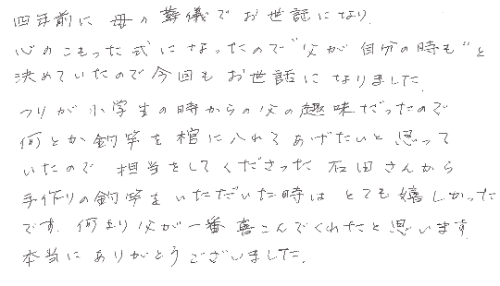 四年前に母の葬儀でお世話になり
心のこもった式になったので"父が自分の時も"と
決めていたので今回もお世話になりました
つりが小学生の時からの父の趣味だったので
何とか釣竿を棺に入れてあげたいと思って
いたので 担当をしてくださった 石田さんから
手作りの釣竿をいただいた時は とても嬉しかった
です. 何より父が一番喜こんでくれたと思います.
本当にありがとうございました.